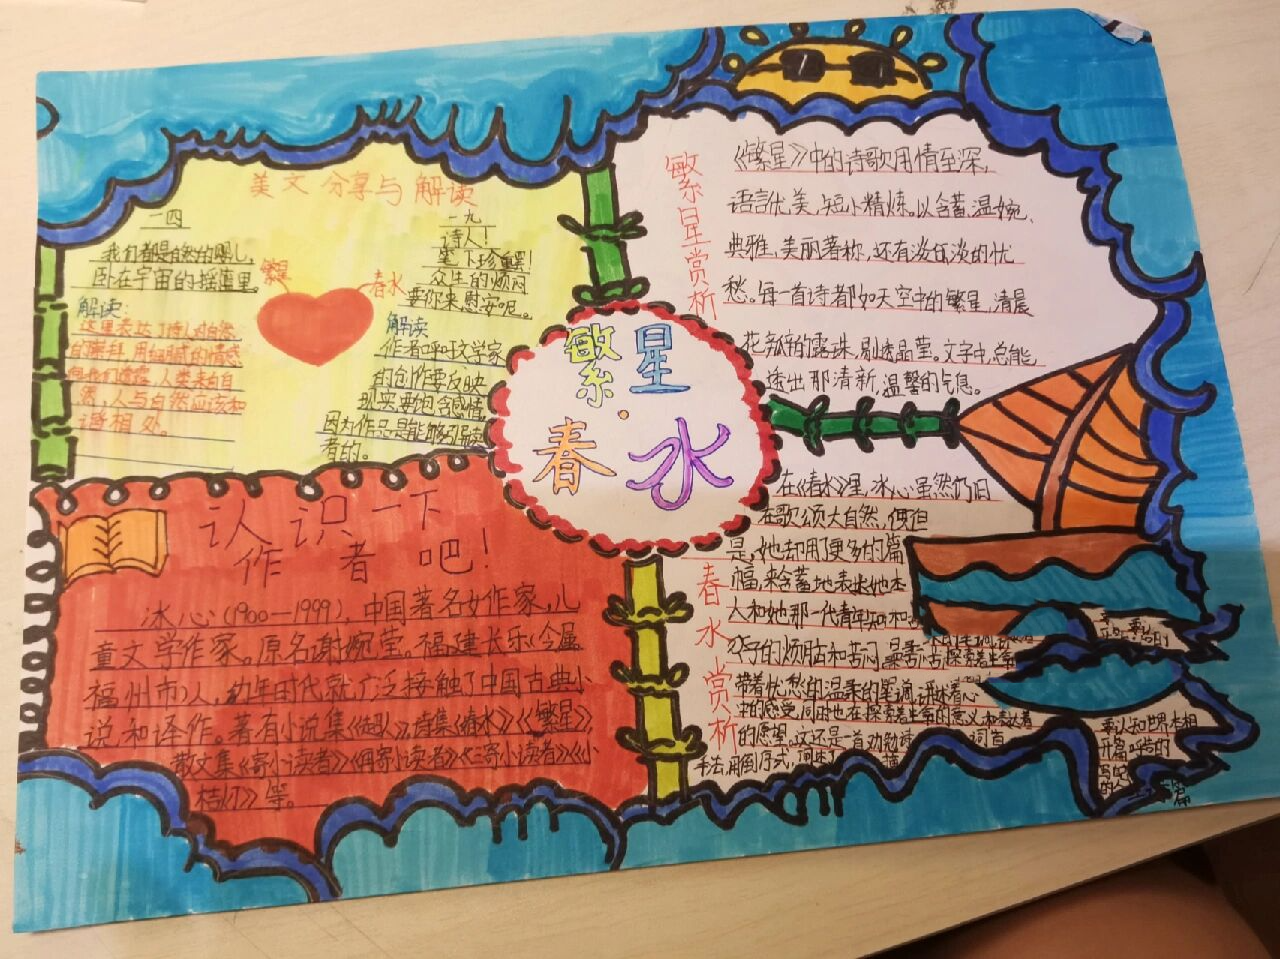 美文分享与解读
二四
我们都是自然的婴儿,
卧在宇宙的摇篮里。
解读:
这里表达了诗人对自然
的崇拜,用细腻的情感
向我们透露,人类来自自
然,人与自然应该和
谐相处。
繁星
春水
一九
诗人!
笔下珍重罢!
众生的烦闷
要你来慰安呢。
解读
作者呼吁文学家
的创作要反映
现实要饱含感情,
因为作品是能够引
者的。
繁星·
春水
繁星赏析
《繁星》中的诗歌用情至深,
语言优美,短小精炼。以含蓄、温婉、
典雅,美丽著称,还有淡淡的忧
愁。每一首诗都如天空中的繁星,清晨
花瓣的露珠,剔透晶莹。文字中总能
透出那清新,温馨的气息。
认识一下
作者吧!
冰心(1900—1999),中国著名女作家,儿
童文学作家。原名谢婉莹。福建长乐(今属
福州市)人,幼年时代就广泛接触了中国古典小
说和译作。著有小说集《超人》,诗集《春水》《繁星》,
散文集《寄小读者》《再寄小读者》《三寄小读者》《小
桔灯》等。
春水赏析
在《春水》里,冰心虽然仍旧
在歌颂大自然,但
是,她却用了更多的篇
幅,来含蓄地表述她本
人和她那一代青年知和
分子的烦恼和苦闷
带着忧愁的温柔的笔调,讲述着心
中的感受,同时也在探索着生命的意义和表达着
的愿望。这还是一首劝勉 词首
手法,用倒序式,